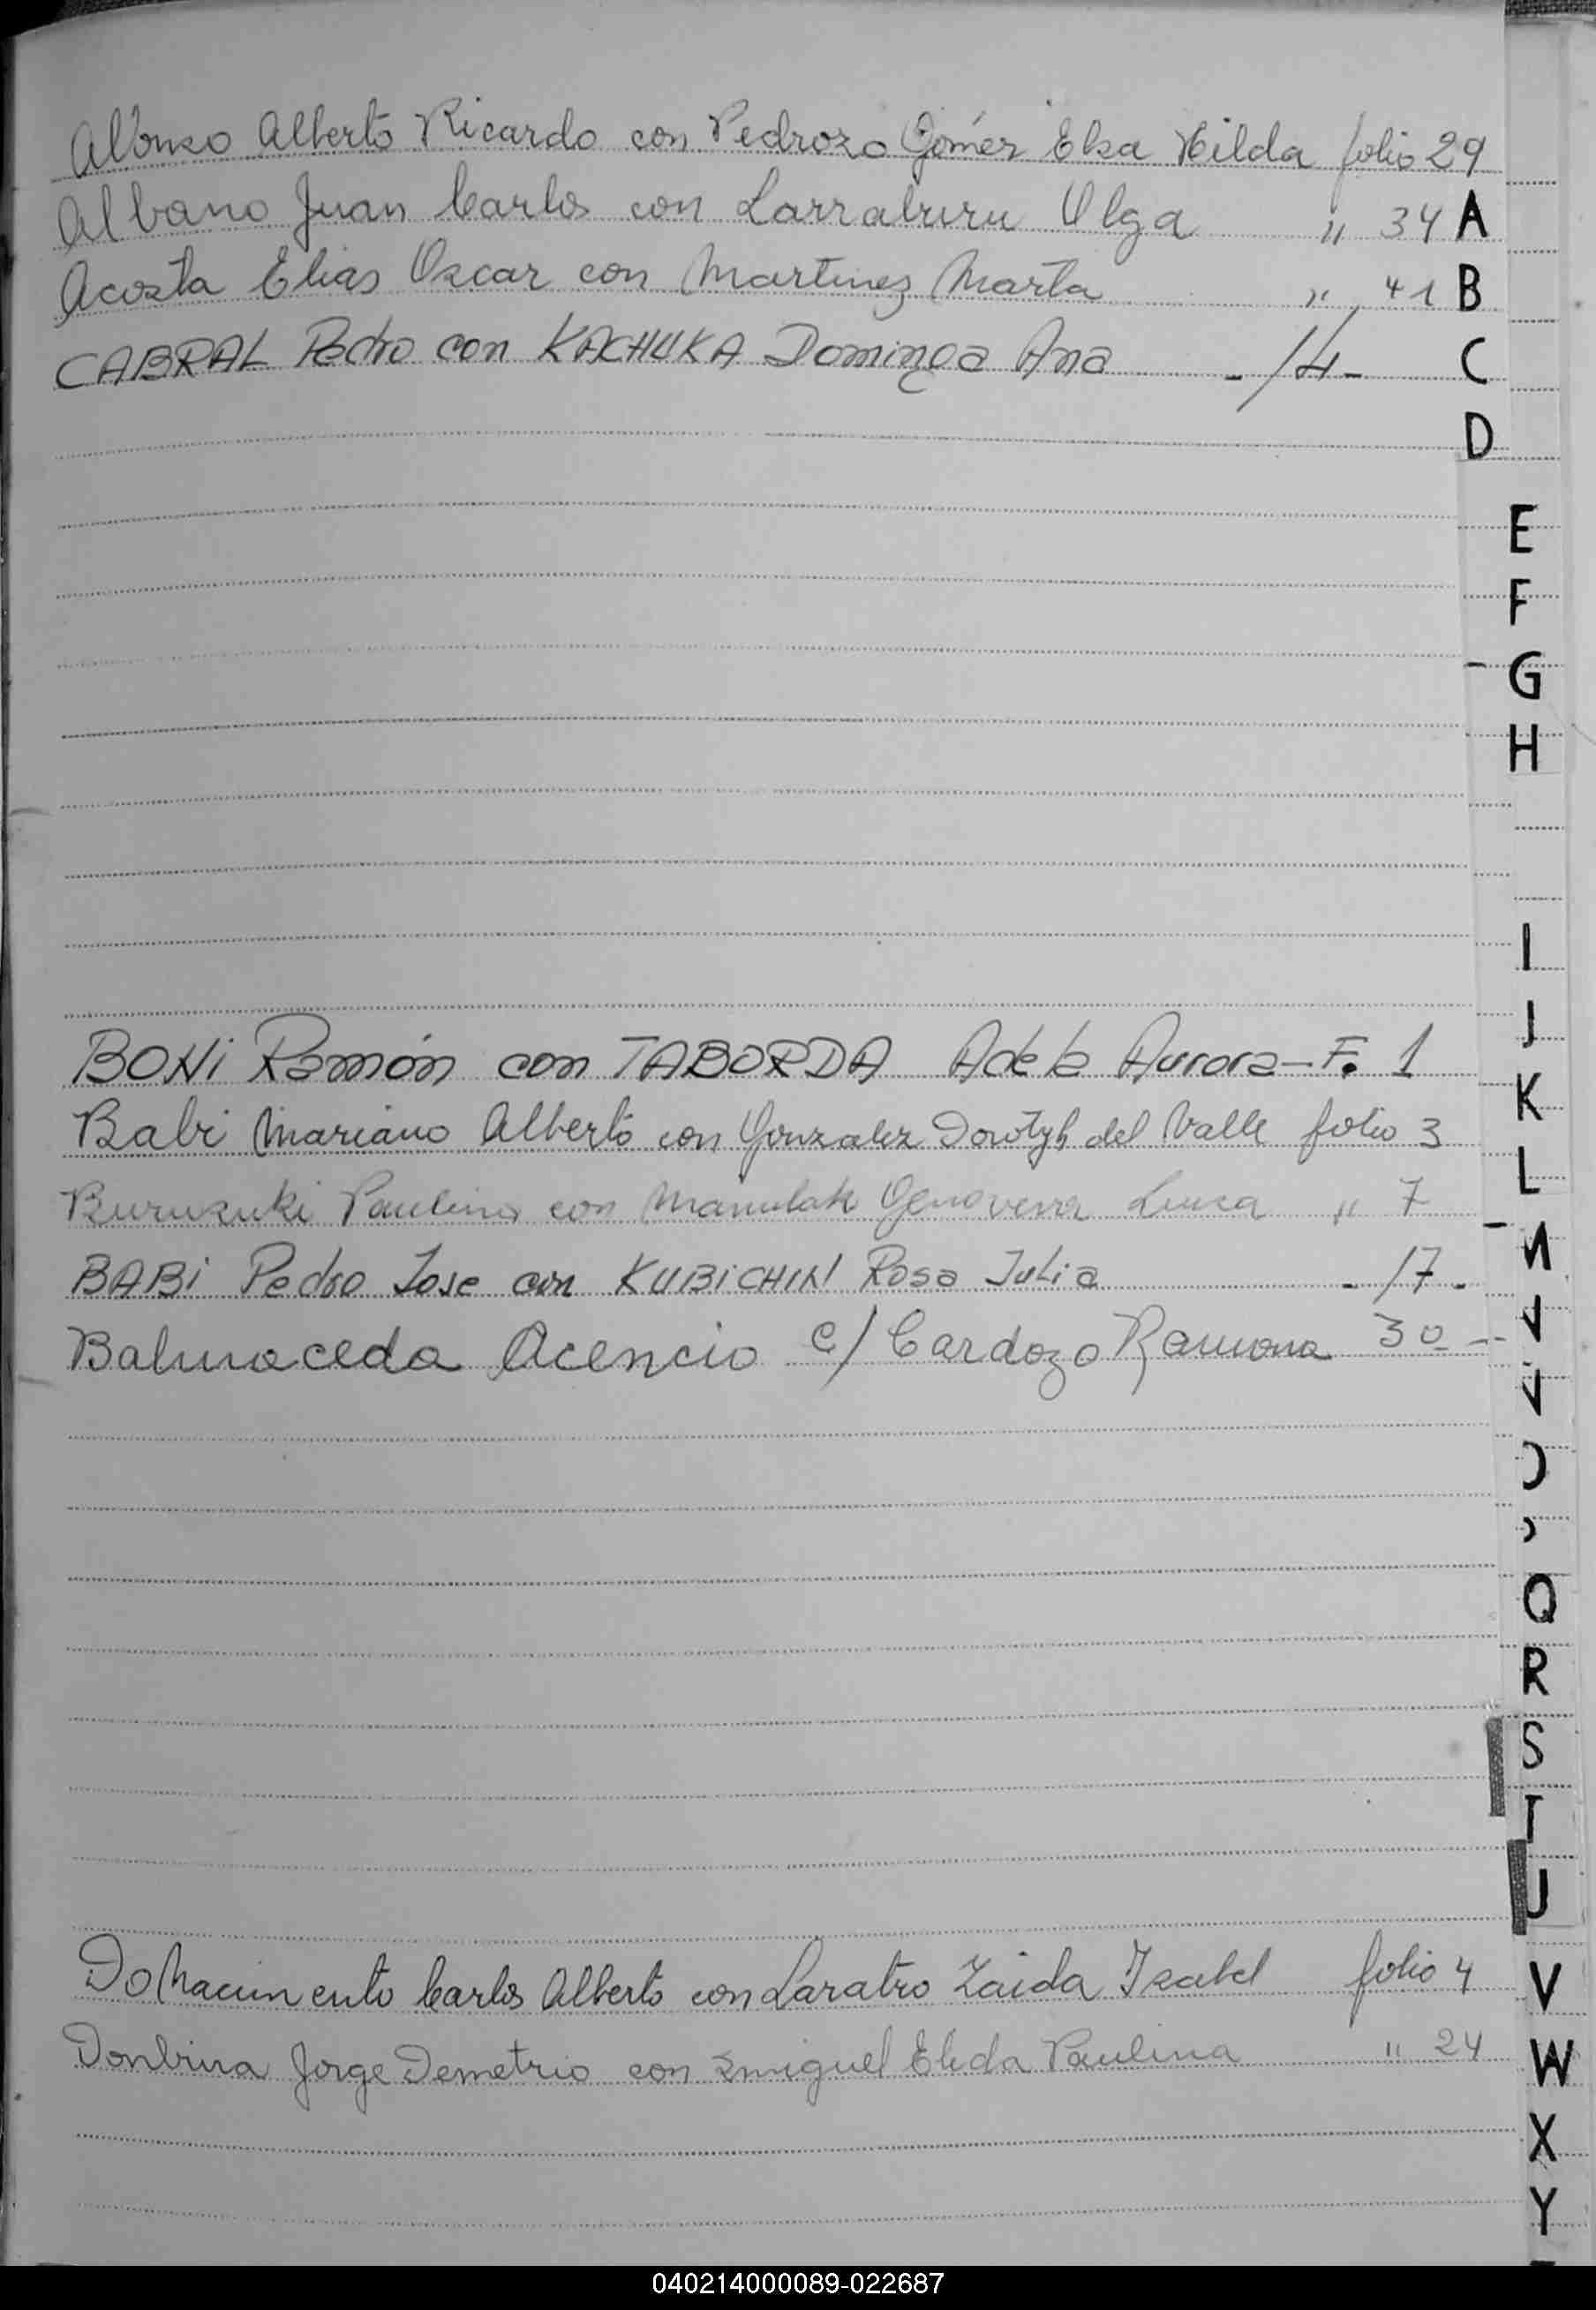 Alonso Alberto Ricardo con Pedrozo Gómez Elsa Hilda folio 29
Albano Juan Carlos con Larraburu Olga " 34 A
Acosta Elias Oscar con Martinez Marta " 41 B
CABRAL Pedro con KACHUKA Dominga Ana -14- C
D
E
F
G
H
I
J
BONI Ramón con TABORDA Adela Aurora - F. 1
K
Babi Mariano Alberto con Gonzalez Dorotyh del Valle folio 3
L
Buruzuki Paulino con Manulak Genoveva Luisa " 7
BABI Pedro Jose con KUBICHIN Rosa Julia - 17 -
Balmaceda Acencio c/ Cardozo Ramona 30 -
Q
R
S
T
U
Do Nacimento Carlos Alberto con Laratro Zaida Isabel folio 4
V
Donbrina Jorge Demetrio con Smiguel Eleda Paulina " 24
W
X
Y
040214000089-022687